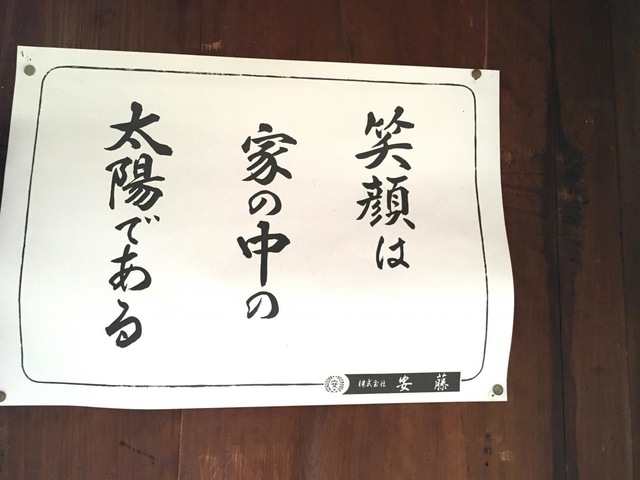 笑顔は
家の中の
太陽である
株式会社 安藤